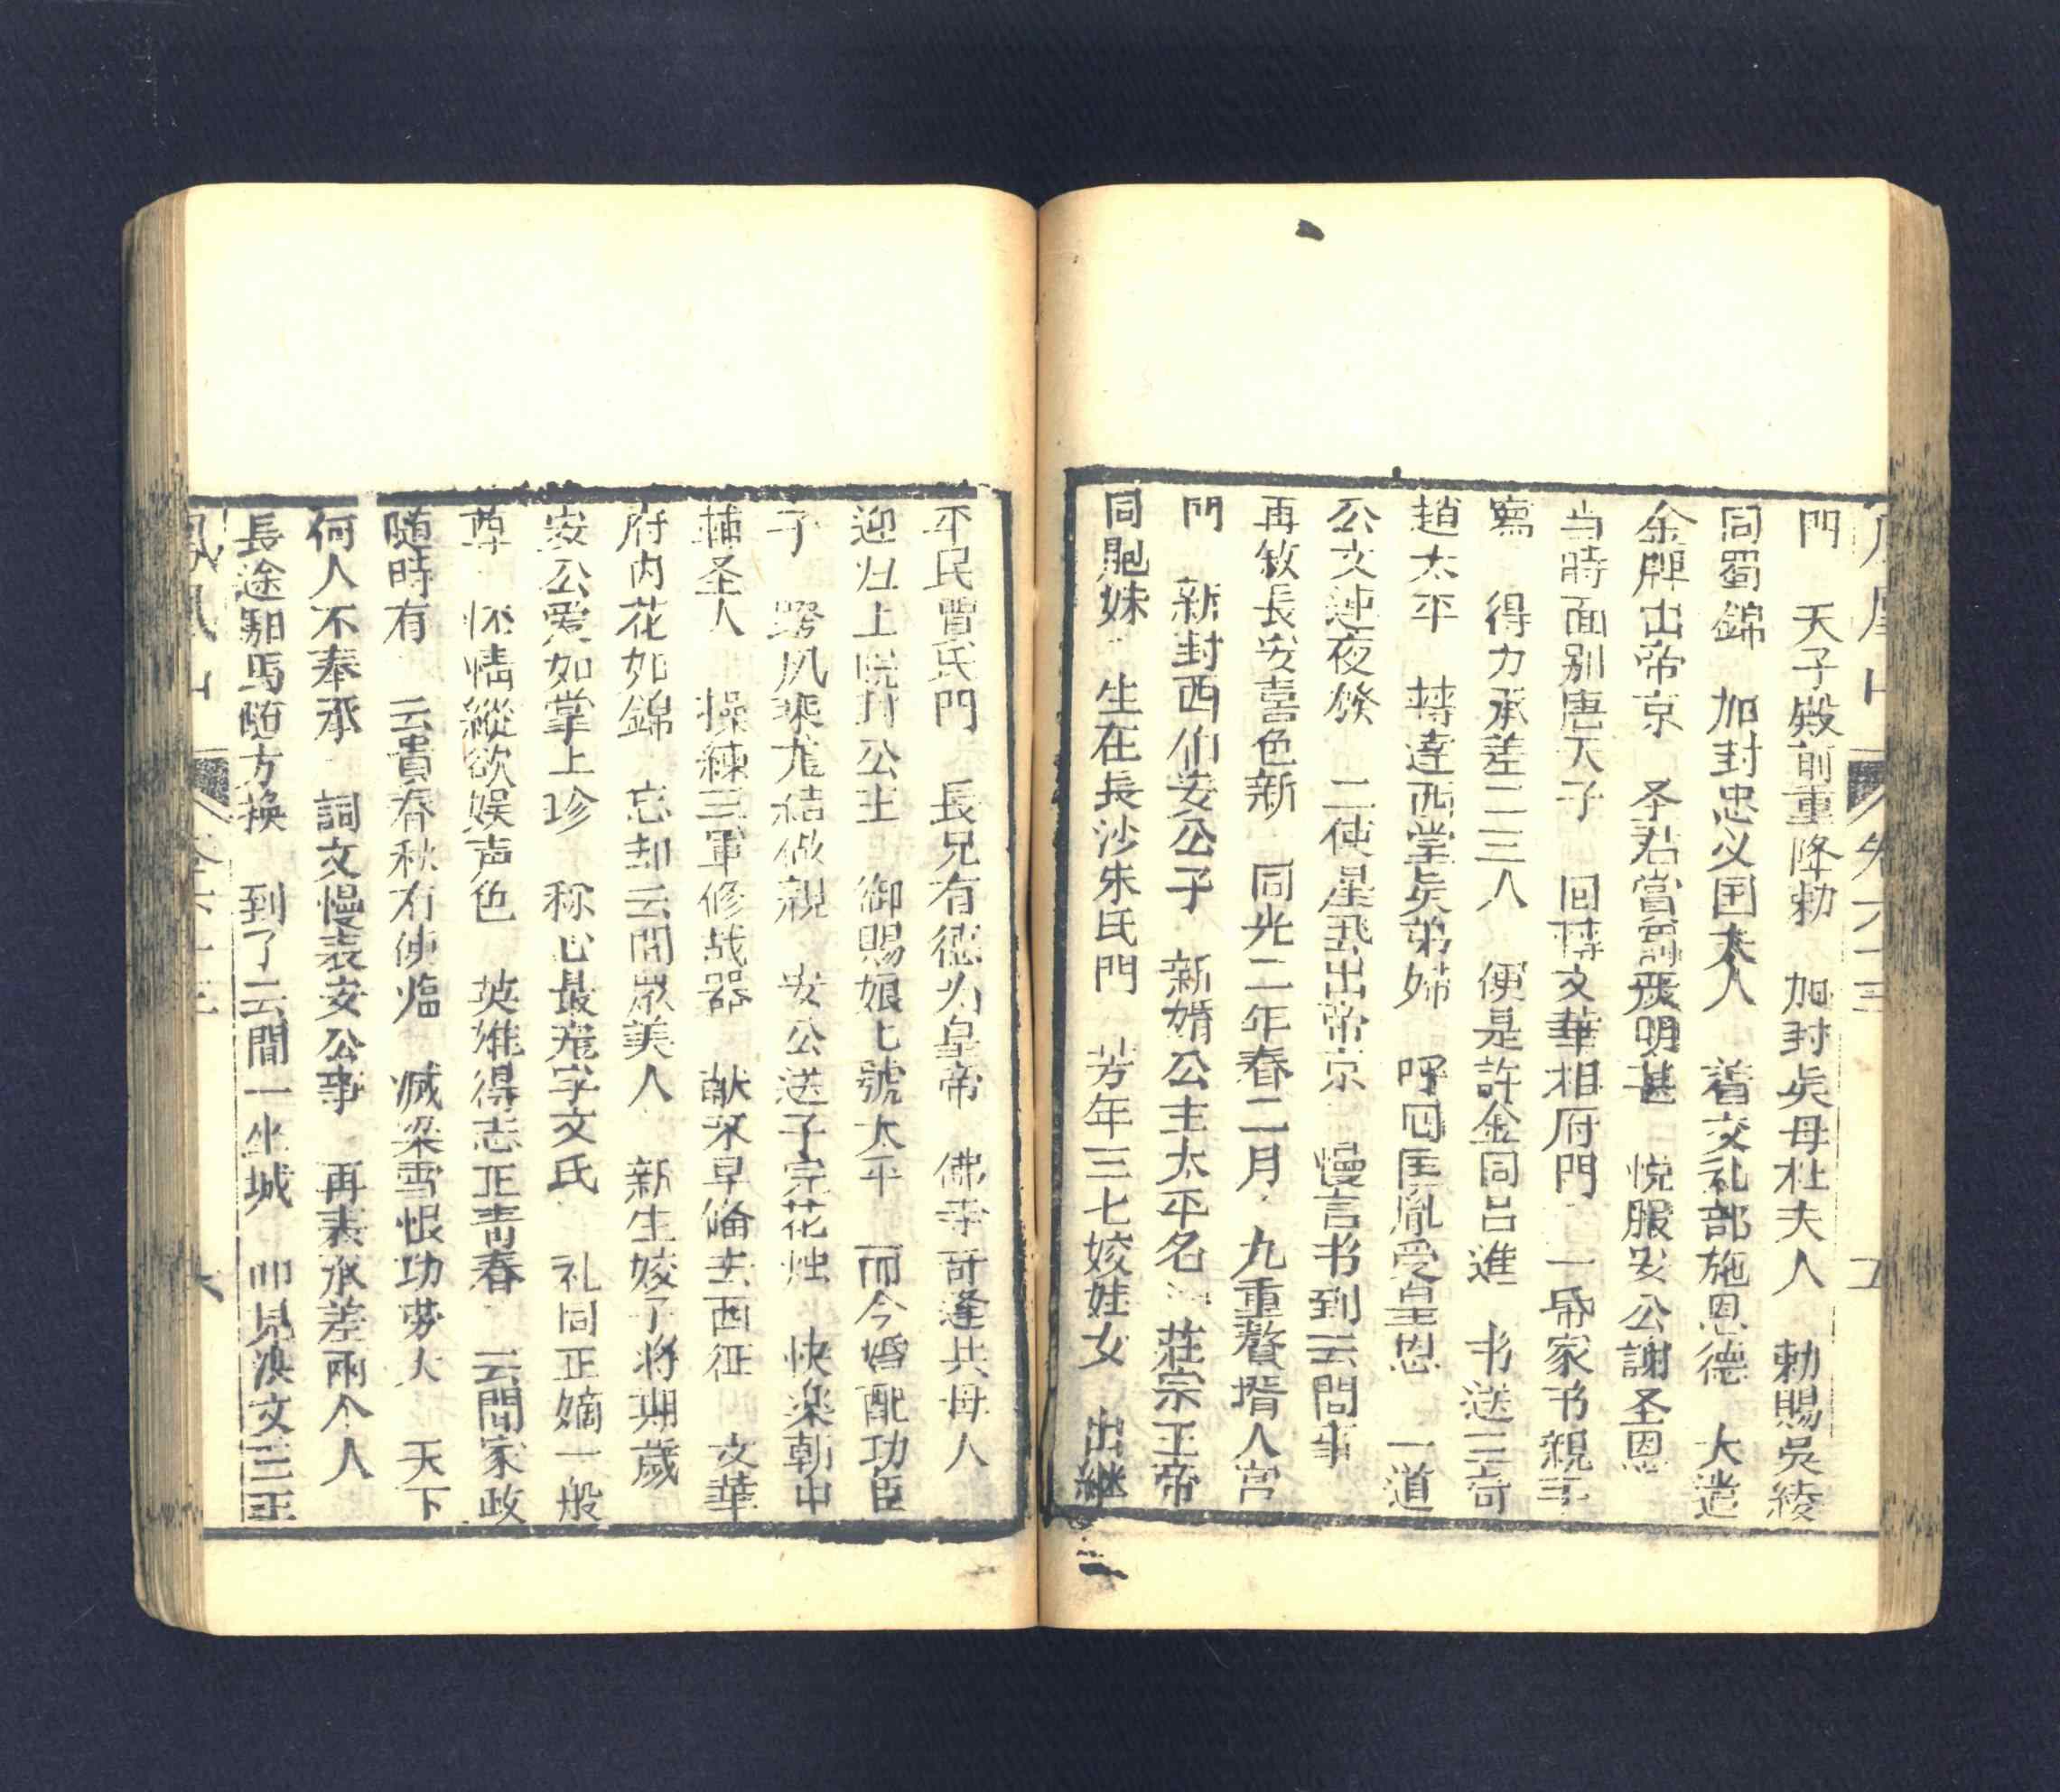 門　天子殿前重降勅　加封矣母杜夫人　勅賜吳綾
同蜀錦　加封忠义囯太夫人　着交礼部施恩德　大進
金牌出帝京　圣君當面彂明甚　悦服安公謝圣恩
当時面别唐天子　回轉文華相府門　一番家书親手
寫　得力承差二三人　便是許金同吕進　书送三奇
趙太平　轉達西堂矣弟婦　呼囘匡胤受皇恩　一道
公文連夜發　二使星飛出帝京　慢言书到云間事
再敘長安喜色新　同光二年春二月　九重贅壻人宮
門　新封西伯安公子　新婚公主太平名　莊宗王帝
同胞妹　生在長沙朱氏門　芳年三七姣娃女　出継
平民曹氏門　長兄有德为皇帝　佛寺奇逢共母人
迎归上院封公主　御賜娘七號太平　而今婚配功臣
子　跨凤乘龙結做親　安公送子完花烛　快楽朝中
輔圣人　操練三軍修战器　献俘早偹去西征　文華
府内花如錦　忘却云間眾美人　新生姣子将期歲
安公爱如掌上珍　称心最宠字文氏　礼同正嫡一般
尊　怀情縱欲娱声色　英雄得志正青春　云間家政
隨時有　云貴春秋有使臨　滅梁雪恨功劳大　天下
何人不奉承　詞文慢表安公事　再表承差兩个人
長途驲馬随方换　到了云間一坐城　叩見漢文三王
鳳凰山　卷六十三　六